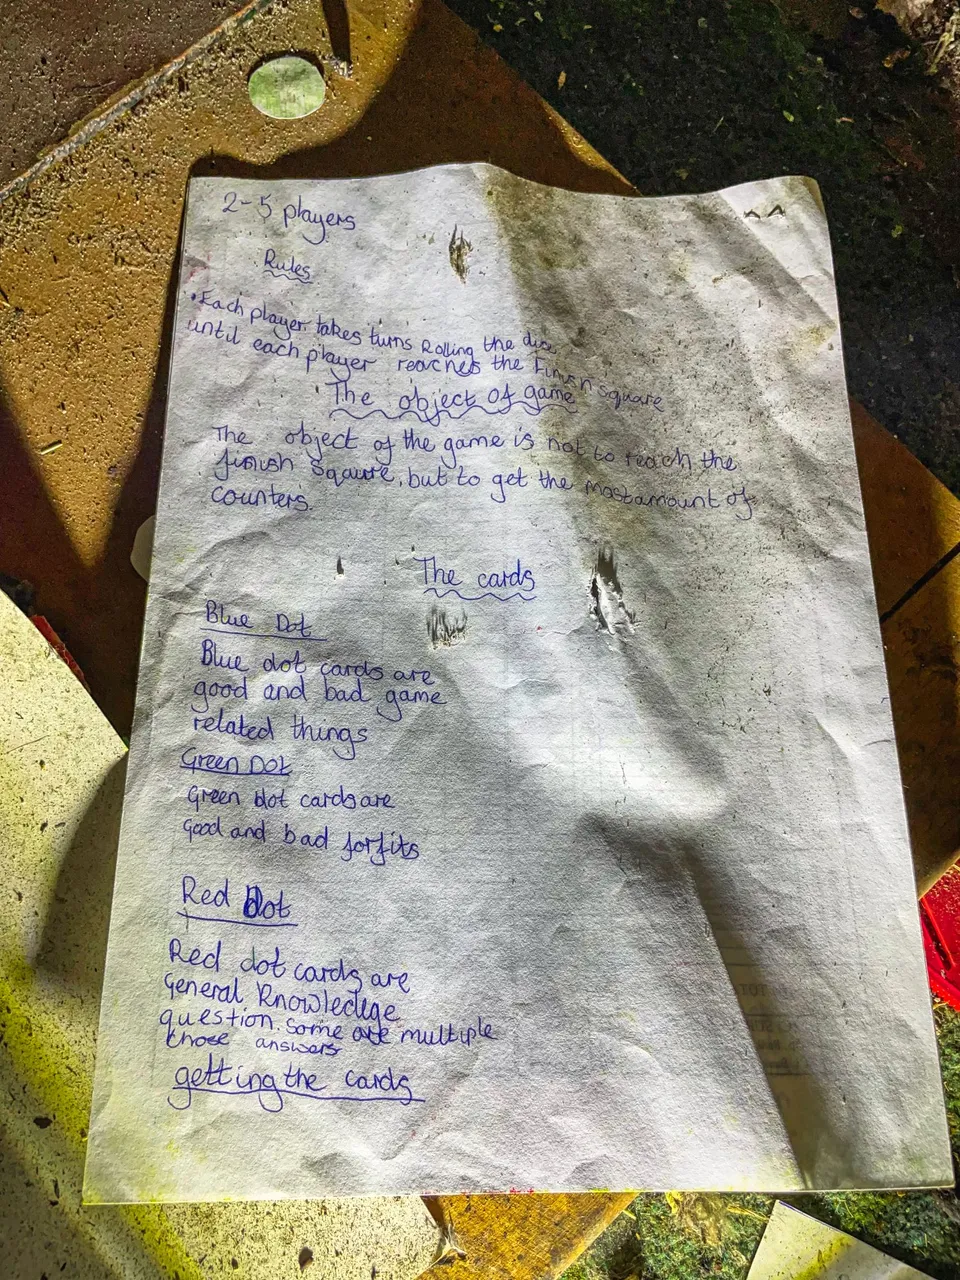 2-5 players
Rules
• Each player takes turns Rolling the dice
until each player reaches the Finish Square
The object of game
The object of the game is not to reach the
finish Sqaure, but to get the most amount of
counters.
The cards
Blue Dot
Blue dot cards are
good and bad game
related things
Green Dot
Green dot cards are
Good and bad forfits
Red Dot
Red dot cards are
General Knowledge
question. Some are multiple
chose answers
getting the cards